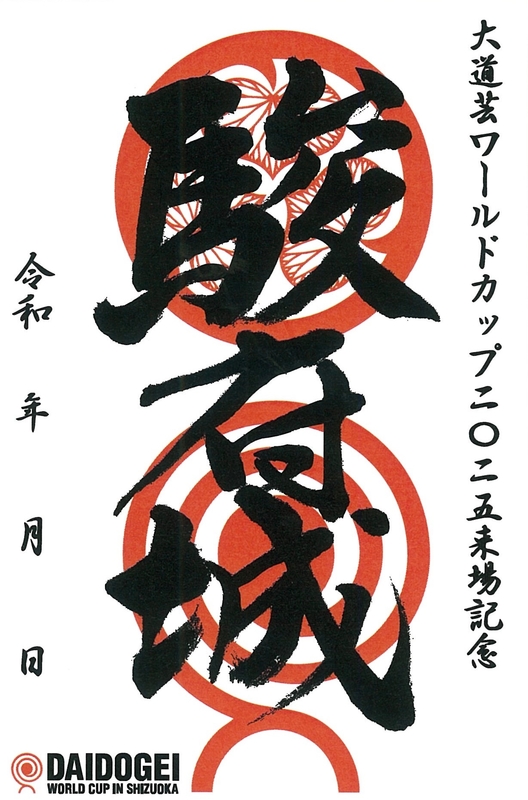 大道芸ワールドカップ二〇二五来場記念
駿府城
令和 年 月 日
DAIDOGEI
WORLD CUP IN SHIZUOKA